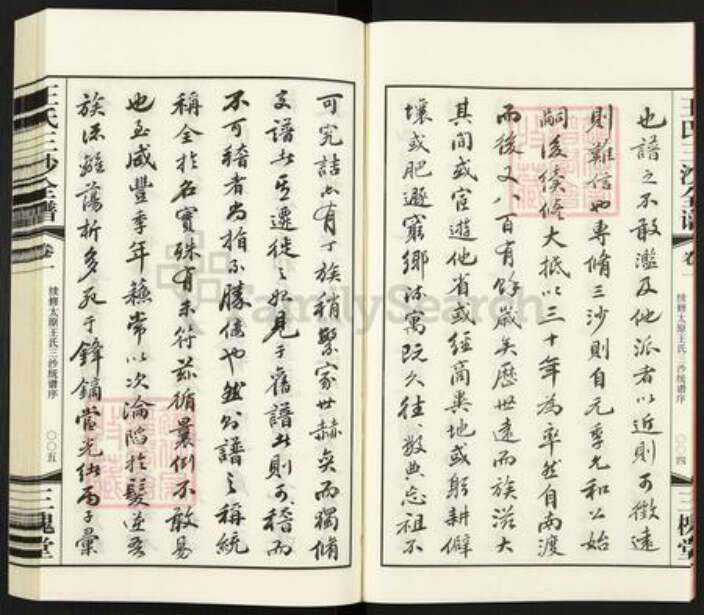 也譜之不敢濫及他派者以近則可徵遠
則難信也專脩三沙則自元季允和公始
嗣後續脩大抵以三十年為率然自南渡
而後又八百有餘歲矣歷世遠而族滋大
其間或宦遊他省或經商異地或躬耕僻
壤或肥遯窮鄉流寓既久往往數典忘祖不
王氏三沙全譜
卷一
续修太原王氏三沙统谱序
〇〇四
三槐堂
可究詰亦有丁族稍繁家世赫奕而獨脩
支譜者至遷徙之始見于舊譜者則可稽而
不可稽者尚指不勝僂也然則譜之稱統
稱全於名實殊有未符茲循曩例不敢易
也至咸豐季年蘇常以次淪陷於髮逆吾
族流離蕩析多死于鋒鏑當光緒丙子彙
王氏三沙全譜
卷一
续修太原王氏三沙统谱序
〇〇五
三槐堂
FamilySearch